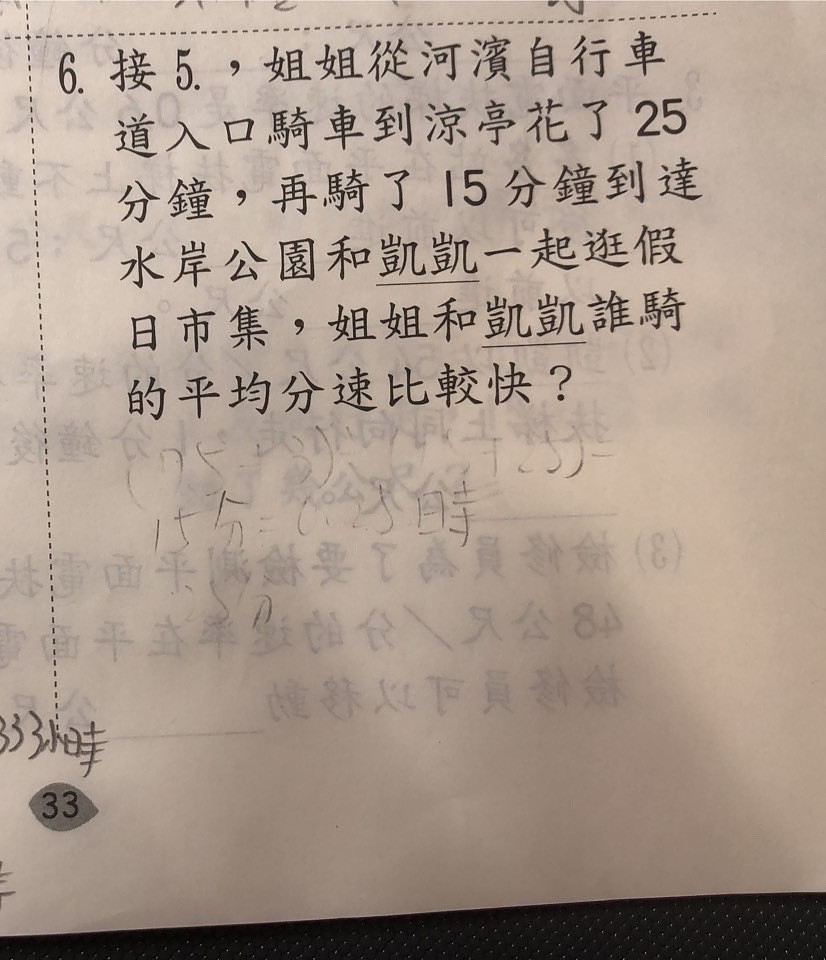 6. 接 5.，姐姐從河濱自行車
道入口騎車到涼亭花了 25
分鐘，再騎了 15 分鐘到達
水岸公園和凱凱一起逛假
日市集，姐姐和凱凱誰騎
的平均分速比較快？
15分=0.25時
333小時
33